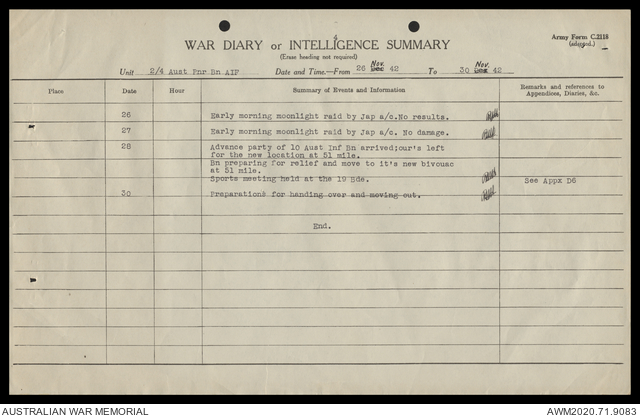 4
Army Form C.2118
(adapted.)
WAR DIARY or INTELLIGENCE SUMMARY
(Erase heading not required)
Unit 2/4 Aust Pnr Bn AIF Date and Time.—From 26 Nov. Dec 42 To 30 Nov. Dec 42
Place Date Hour Summary of Events and Information Remarks and references to Appendices, Diaries, &c.
26 Early morning moonlight raid by Jap a/c. No results.
27 Early morning moonlight raid by Jap a/c. No damage.
28 Advance party of 10 Aust Inf Bn arrived;our's left
for the new location at 51 mile.
Bn preparing for relief and move to it's new bivouac
at 51 mile.
Sports meeting held at the 19 Bde. See Appx D6
30 Preparations for handing over and moving out.
End.
AUSTRALIAN WAR MEMORIAL AWM2020.71.9083